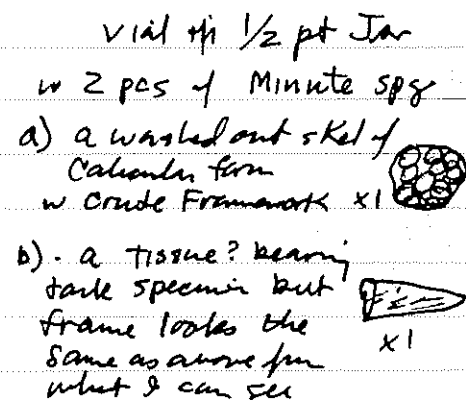 vial in 1/2 pt Jar
w 2 pcs of Minute spg
a) a washed out skel of
form
w crude Framework x1
b) - a tissue? bearing
dark specimen but
frame looks the
same as above from
what I can see
x1